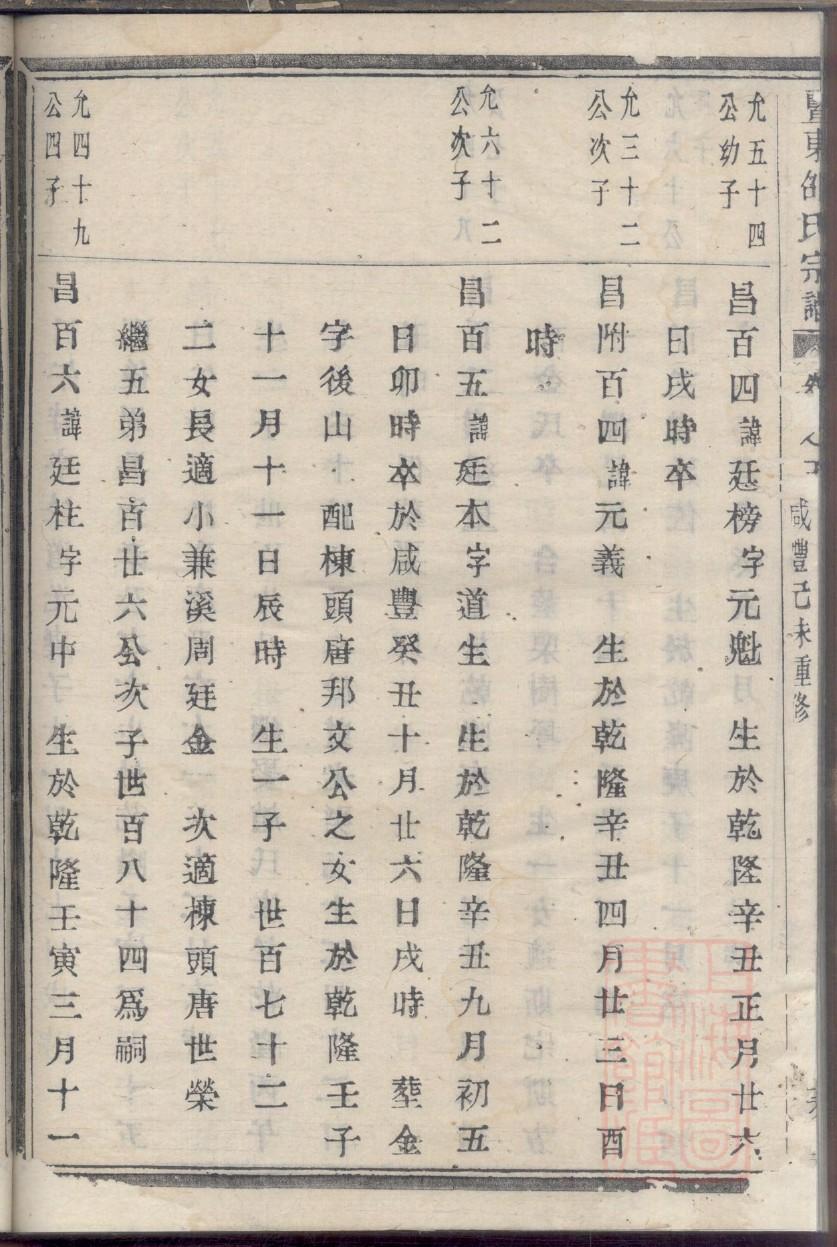 暨東邵氏宗譜
咸豐己未重修
允五十四
公幼子
昌百四諱廷榜字元魁 生於乾隆辛丑正月廿六
日戌時卒
允三十二
公次子
昌附百四諱元義 生於乾隆辛丑四月廿三日酉
時
允六十二
公次子
昌百五諱廷本字道生 生於乾隆辛丑九月初五
日卯時卒於咸豐癸丑十月廿六日戌時 塟金
字後山 配棟頭唐邦文公之女生於乾隆壬子
十一月十一日辰時 生一子 世百七十二
二女長適小兼溪周廷金 次適棟頭唐世榮
繼五弟昌百廿六公次子世百八十四爲嗣
允四十九
公四子
昌百六諱廷柱字元中 生於乾隆壬寅三月十一